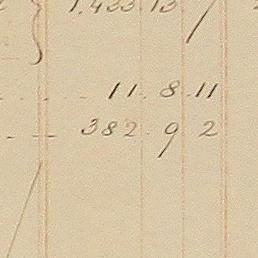 1.433.13
11.8.11
382.9 2